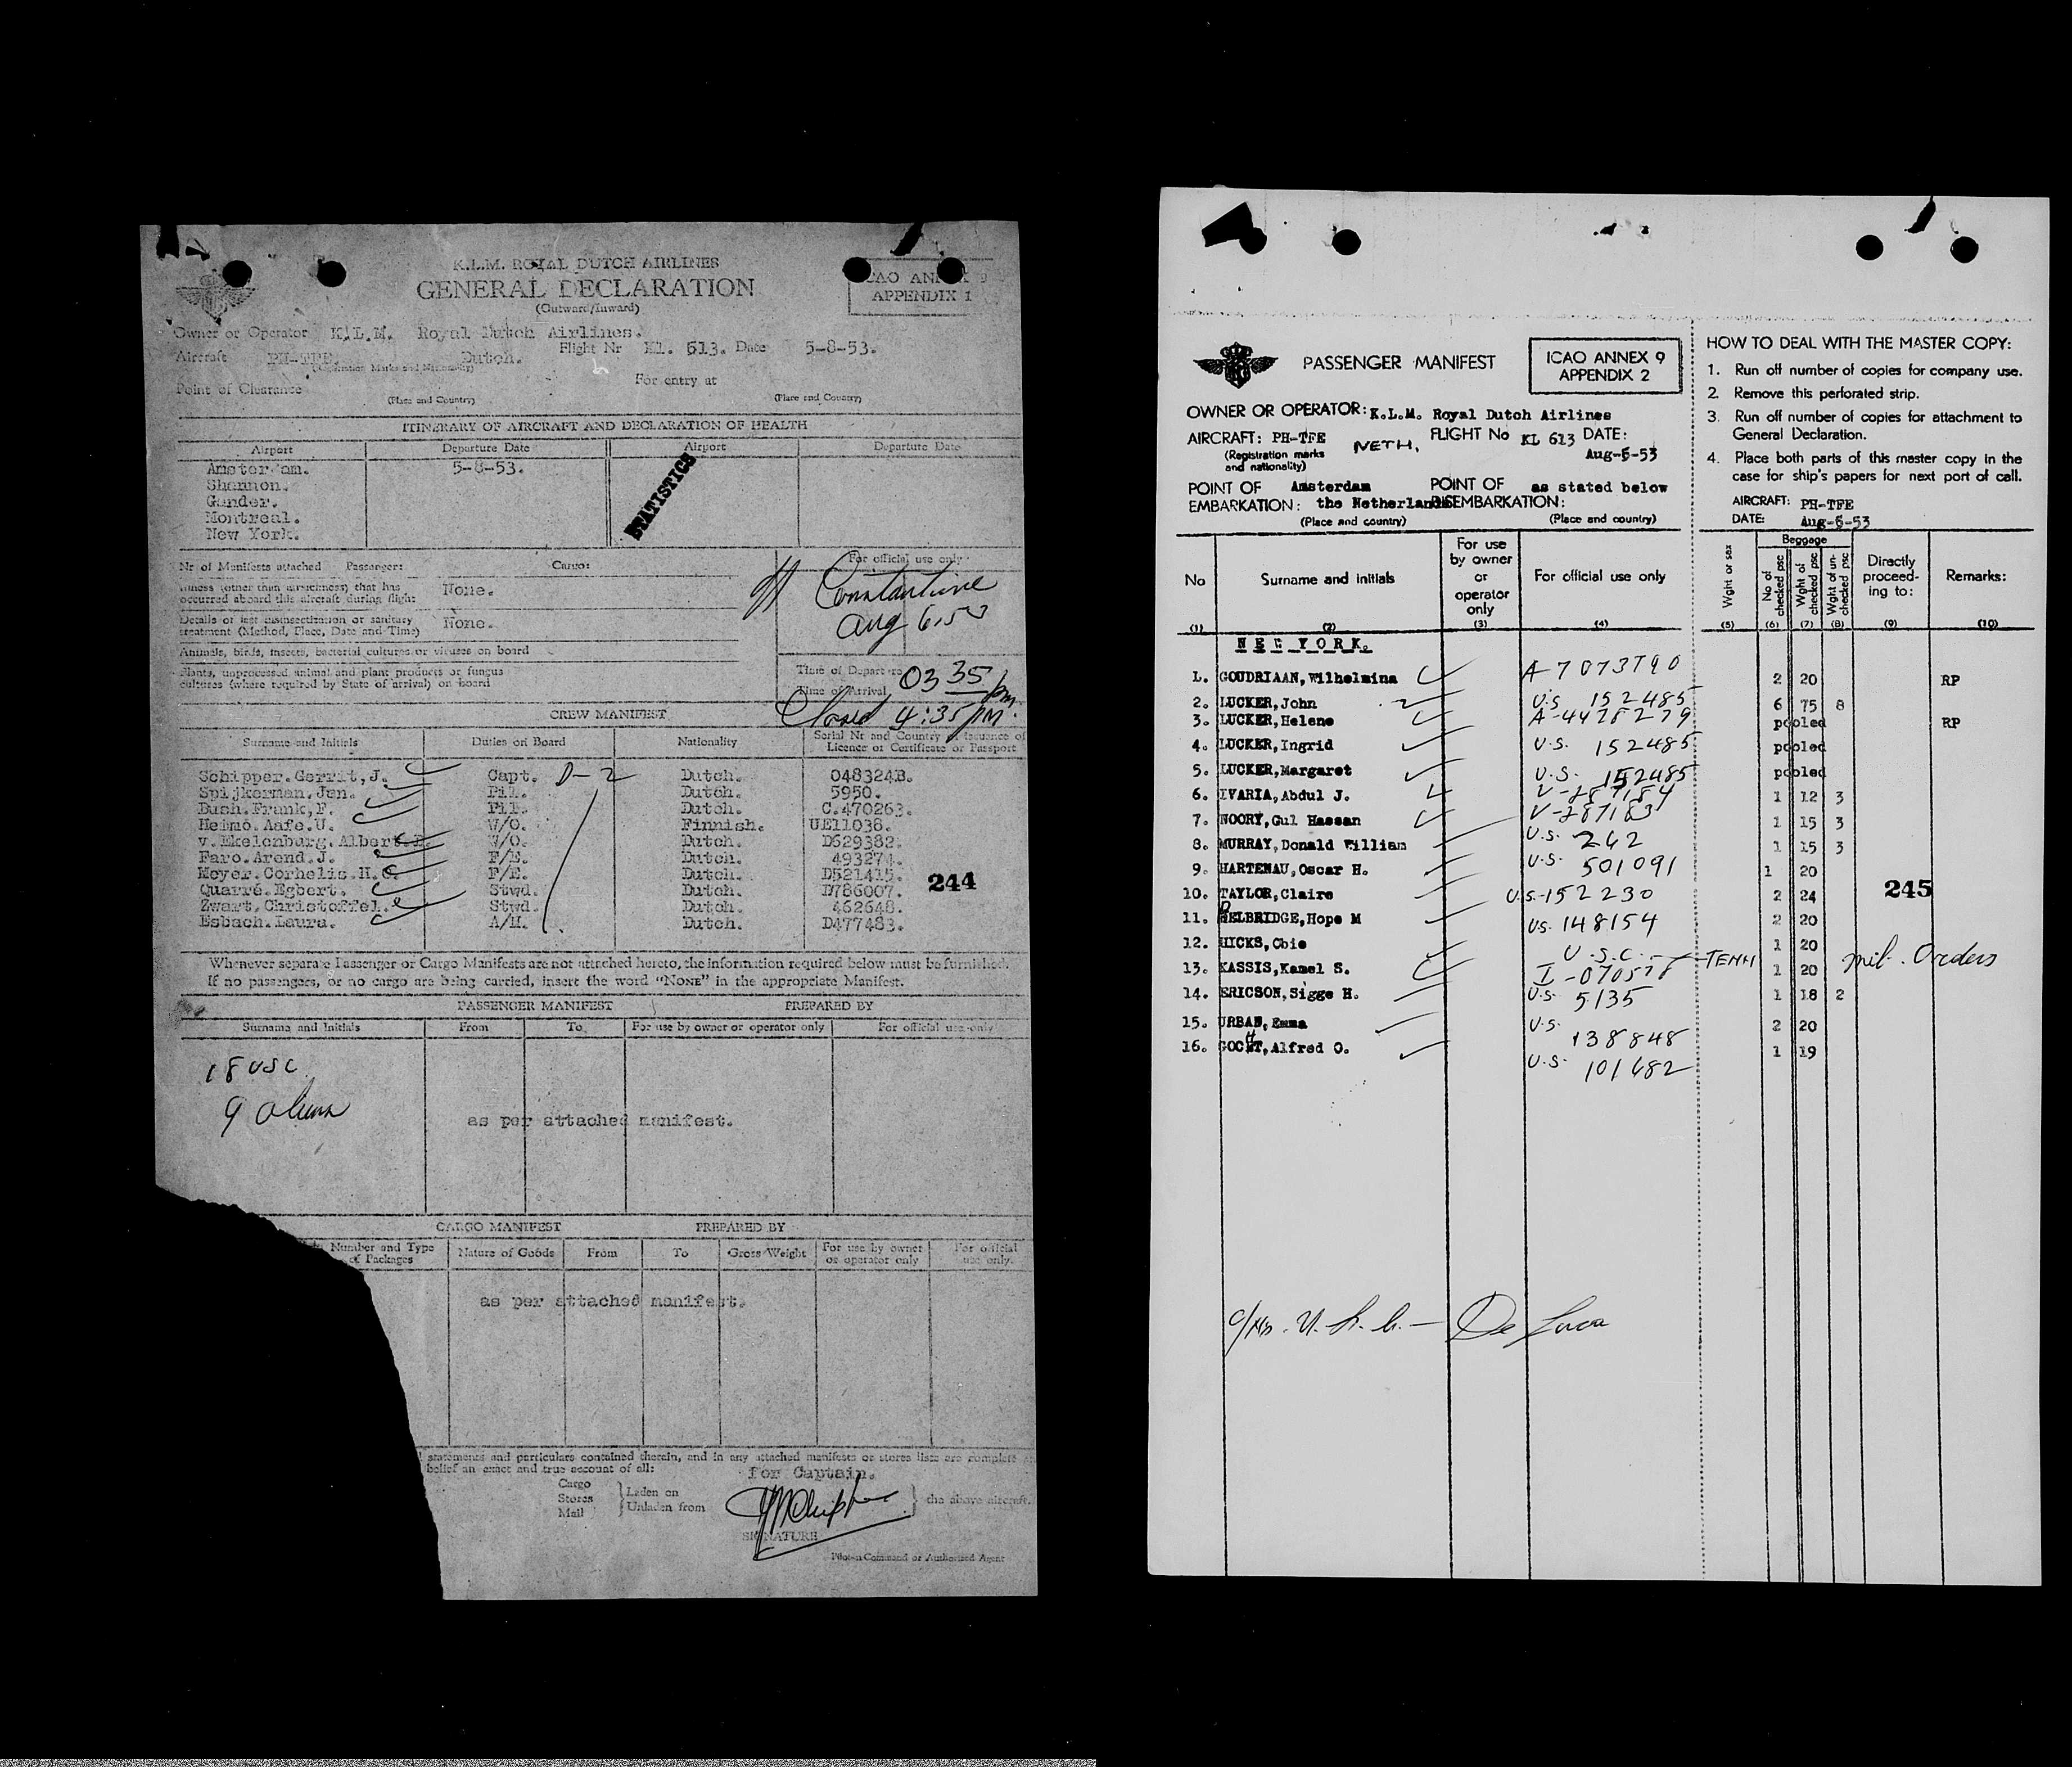 K.L.M. ROYAL DUTCH AIRLINES
GENERAL DECLARATION
(Outward/Inward)
ICAO ANNEX 9
APPENDIX 1
Owner or Operator K.L.M. Royal Dutch Airlines.
Aircraft PH-TFE. Dutch. Flight Nr Kl. 613. Date 5-8-53.
(Registration Marks and Nationality)
Point of Clearance For entry at
(Place and Country) (Place and Country)
ITINERARY OF AIRCRAFT AND DECLARATION OF HEALTH
Airport Departure Date Airport Departure Date
Amsterdam. 5-8-53.
Shannon.
Gander.
Montreal.
New York.
STATISTICS
Nr of Manifests attached Passenger: Cargo: For official use only
Illness (other than airsickness) that has
occurred aboard this aircraft during flight None.
Details of last disinsectization or sanitary
treatment (Method, Place, Date and Time) None.
Constantine
Aug 6, 53
Animals, birds, insects, bacterial cultures or viruses on board
Plants, unprocessed animal and plant products or fungus
cultures (where required by State of arrival) on board
Time of Departure
Time of Arrival 03 35 pm.
Closed 4:35 PM.
CREW MANIFEST
Surname and Initials Duties on Board Nationality Serial Nr and Country of Issuance of
Licence or Certificate or Passport
Schipper.Gerrit,J. Capt. D-2 Dutch. 048324B.
Spijkerman.Jan. Pil. Dutch. 5950.
Bush.Frank,F. Pil. Dutch. C.470263.
Heimo.Aafe.U. W/O. Finnish. UE11038.
v.Ekelenburg.Albert.B. W/O. Dutch. D629382.
Faro.Arend.J. F/E. Dutch. 493274.
Meyer.Cornelis.H.C. F/E. Dutch. D521415.
Quarré.Egbert. Stwd. Dutch. D786007.
Zwart.Christoffel. Stwd. Dutch. 462648.
Esbach.Laura. A/H. Dutch. D477483.
244
Whenever separate Passenger or Cargo Manifests are not attached hereto, the information required below must be furnished.
If no passengers, or no cargo are being carried, insert the word "NONE" in the appropriate Manifest.
PASSENGER MANIFEST PREPARED BY
Surname and Initials From To For use by owner or operator only For official use only
18 USC
9 aliens
as per attached manifest.
CARGO MANIFEST PREPARED BY
Number and Type
of Packages Nature of Goods From To Gross Weight For use by owner
or operator only For official
use only
as per attached manifest.
statements and particulars contained therein, and in any attached manifests or stores lists are complete
belief an exact and true account of all:
for Captain.
Cargo
Stores
Mail
Laden on
Unladen from
the above aircraft.
SIGNATURE
Pilot-in-Command or Authorized Agent
PASSENGER MANIFEST
ICAO ANNEX 9
APPENDIX 2
OWNER OR OPERATOR: K.L.M. Royal Dutch Airlines
AIRCRAFT: PH-TFE NETH. FLIGHT No KL 613 DATE:
(Registration marks
and nationality) Aug-5-53
POINT OF Amsterdam POINT OF as stated below
EMBARKATION: the Netherlands DISEMBARKATION:
(Place and country) (Place and country)
HOW TO DEAL WITH THE MASTER COPY:
1. Run off number of copies for company use.
2. Remove this perforated strip.
3. Run off number of copies for attachment to
General Declaration.
4. Place both parts of this master copy in the
case for ship's papers for next port of call.
AIRCRAFT: PH-TFE
DATE: Aug-5-53
No Surname and initials For use
by owner
or
operator
only For official use only Wght or sex Baggage
No of
checked psc Wght of
checked psc Wght of un-
checked psc Directly
proceed-
ing to: Remarks:
(1) (2) (3) (4) (5) (6) (7) (8) (9) (10)
NEW YORK.
1. GOUDRIAAN,Wilhelmina A-7073790 2 20 RP
2. LUCKER,John U.S. 152485 6 75 8
3. LUCKER,Helene A-4428279 pooled RP
4. LUCKER,Ingrid U.S. 152485 pooled
5. LUCKER,Margaret U.S. 152485 pooled
6. IVARIA,Abdul J. V-287184 1 12 3
7. NOORY,Gul Hassan V-287183 1 15 3
8. MURRAY,Donald William U.S. 262 1 15 3
9. HARTENAU,Oscar H. U.S. 501091 1 20
10. TAYLOR,Claire U.S.-152230 2 24
245
11. DELBRIDGE,Hope M U.S. 148154 2 20
12. HICKS,Obie U.S.C. 1 20 mil. Orders
13. KASSIS,Kamel S. I-070578 TEMM 1 20
14. ERICSON,Sigge H. U.S. 5135 1 18 2
15. URBAN,Emma U.S. 138848 2 20
16. GOCHT,Alfred O. U.S. 101682 1 19
De Luca